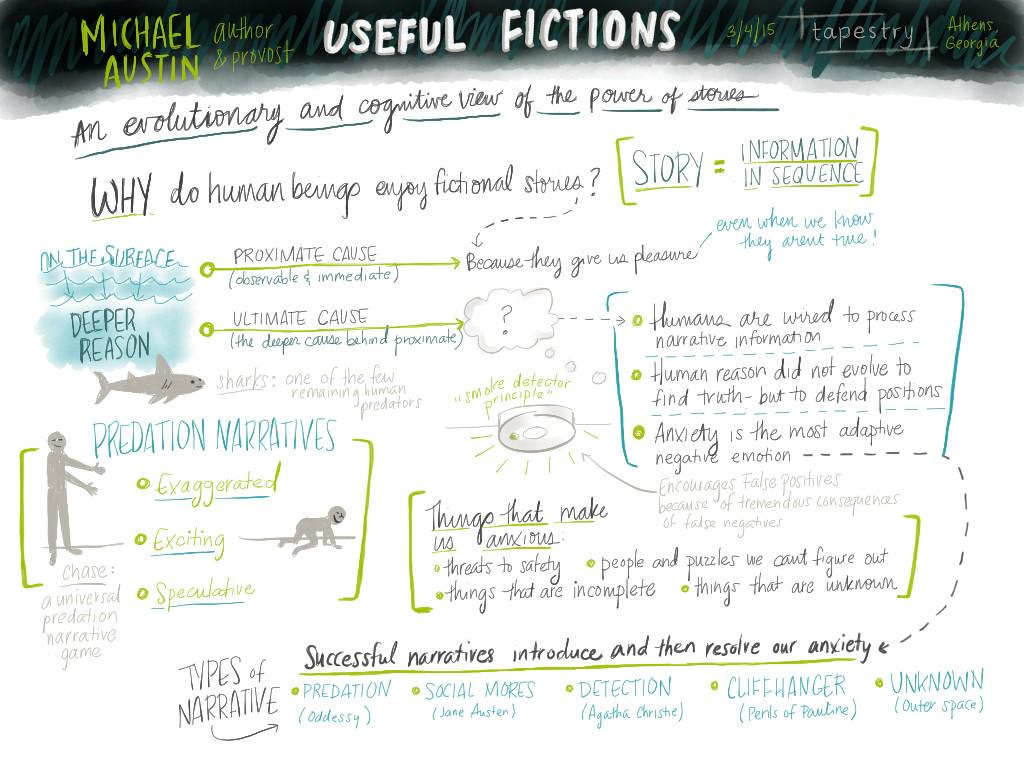 MICHAEL
AUSTIN
author
& provost
USEFUL FICTIONS
3/4/15
tapestry
Athens,
Georgia
An evolutionary and cognitive view of the power of stories
WHY do human beings enjoy fictional stories?
STORY = INFORMATION
IN SEQUENCE
even when we know
they arent true!
ON THE SURFACE
PROXIMATE CAUSE
(observable & immediate)
Because they give us pleasure
DEEPER
REASON
ULTIMATE CAUSE
(the deeper cause behind proximate)
?
Humans are wired to process
narrative information
Human reason did not evolve to
find truth - but to defend positions
Anxiety is the most adaptive
negative emotion
sharks: one of the few
remaining human
predators
"smoke detector
principle"
Encourages False Positives
because of tremendous consequences
of false negatives
PREDATION NARRATIVES
Exaggerated
Exciting
Speculative
chase:
a universal
predation
narrative
game
Things that make
us anxious:
threats to safety
people and puzzles we cant figure out
things that are incomplete
things that are unknown
Successful narratives introduce and then resolve our anxiety
TYPES of
NARRATIVE
PREDATION
(Oddessy)
SOCIAL MORES
(Jane Austen)
DETECTION
(Agatha Christie)
CLIFFHANGER
(Perils of Pauline)
UNKNOWN
(Outer space)